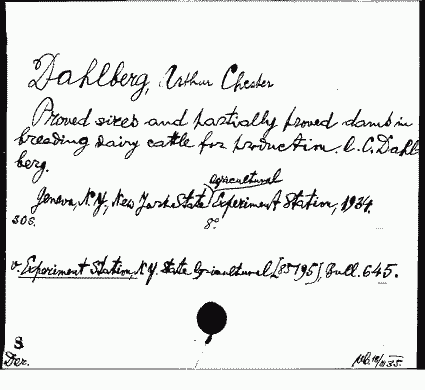 Dahlberg, Arthur Chester
Proved sires and partially proved dams in
breeding dairy cattle for production. A. C. Dahl
berg.
agricultural
Geneva, N.Y., New York State Experiment Station, 1934.
30 p. 8°
v. Experiment Station, N.Y. State Agricultural [85795], Bull. 645.
S
Der.